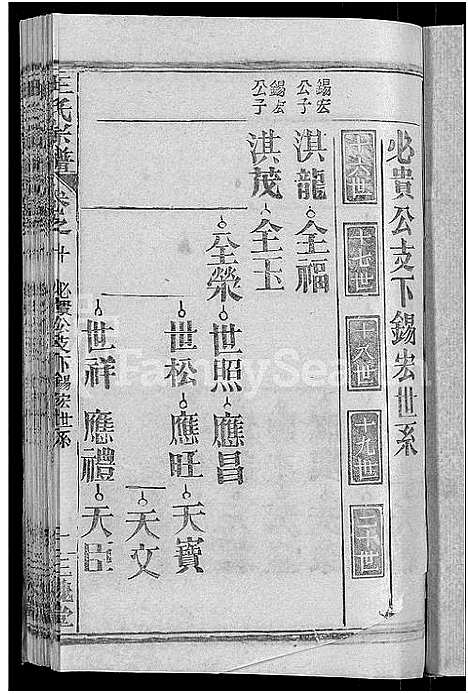 必貴公支下錫宏世系
十六世 十七世 十八世 十九世 二十世
錫宏公子 淇龍 全福
錫宏公子 淇茂 全玉
全榮 世照 應昌
世松 應旺 天寶
天文
世祥 應禮 天臣
王氏宗譜 卷之十 必貴公支下錫宏世系 三槐堂